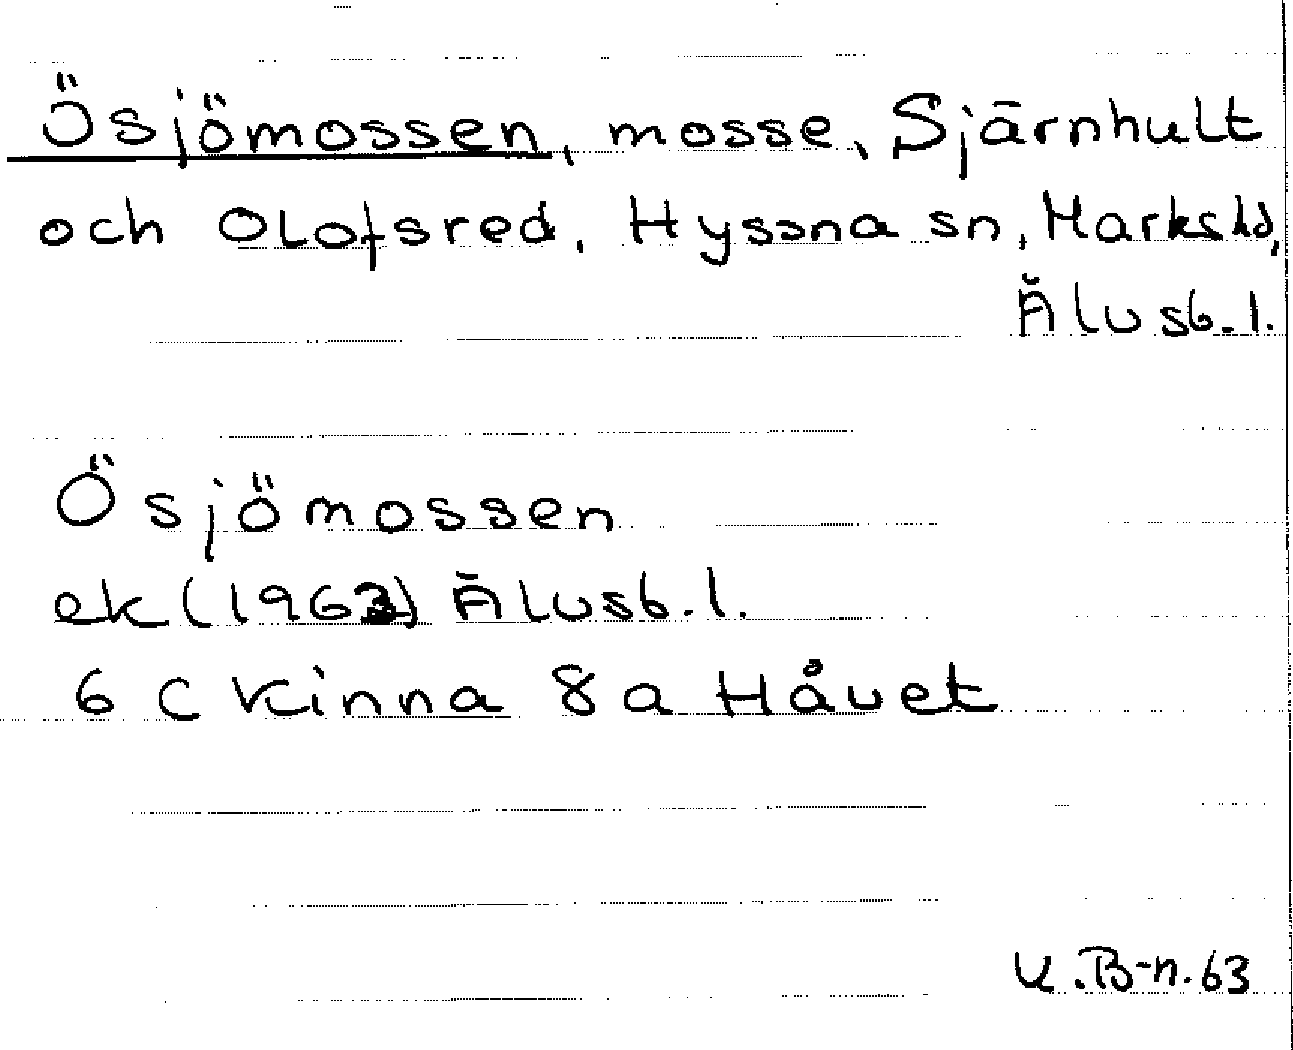 Ösjömossen, mosse, Sjärnhult
och Olofsred, Hyssna sn, Marks hd,
Älvsb. l.
Ösjömossen
ek (1963) Älvsb. l.
6 C Kinna 8 a Håvet
U.B-n. 63